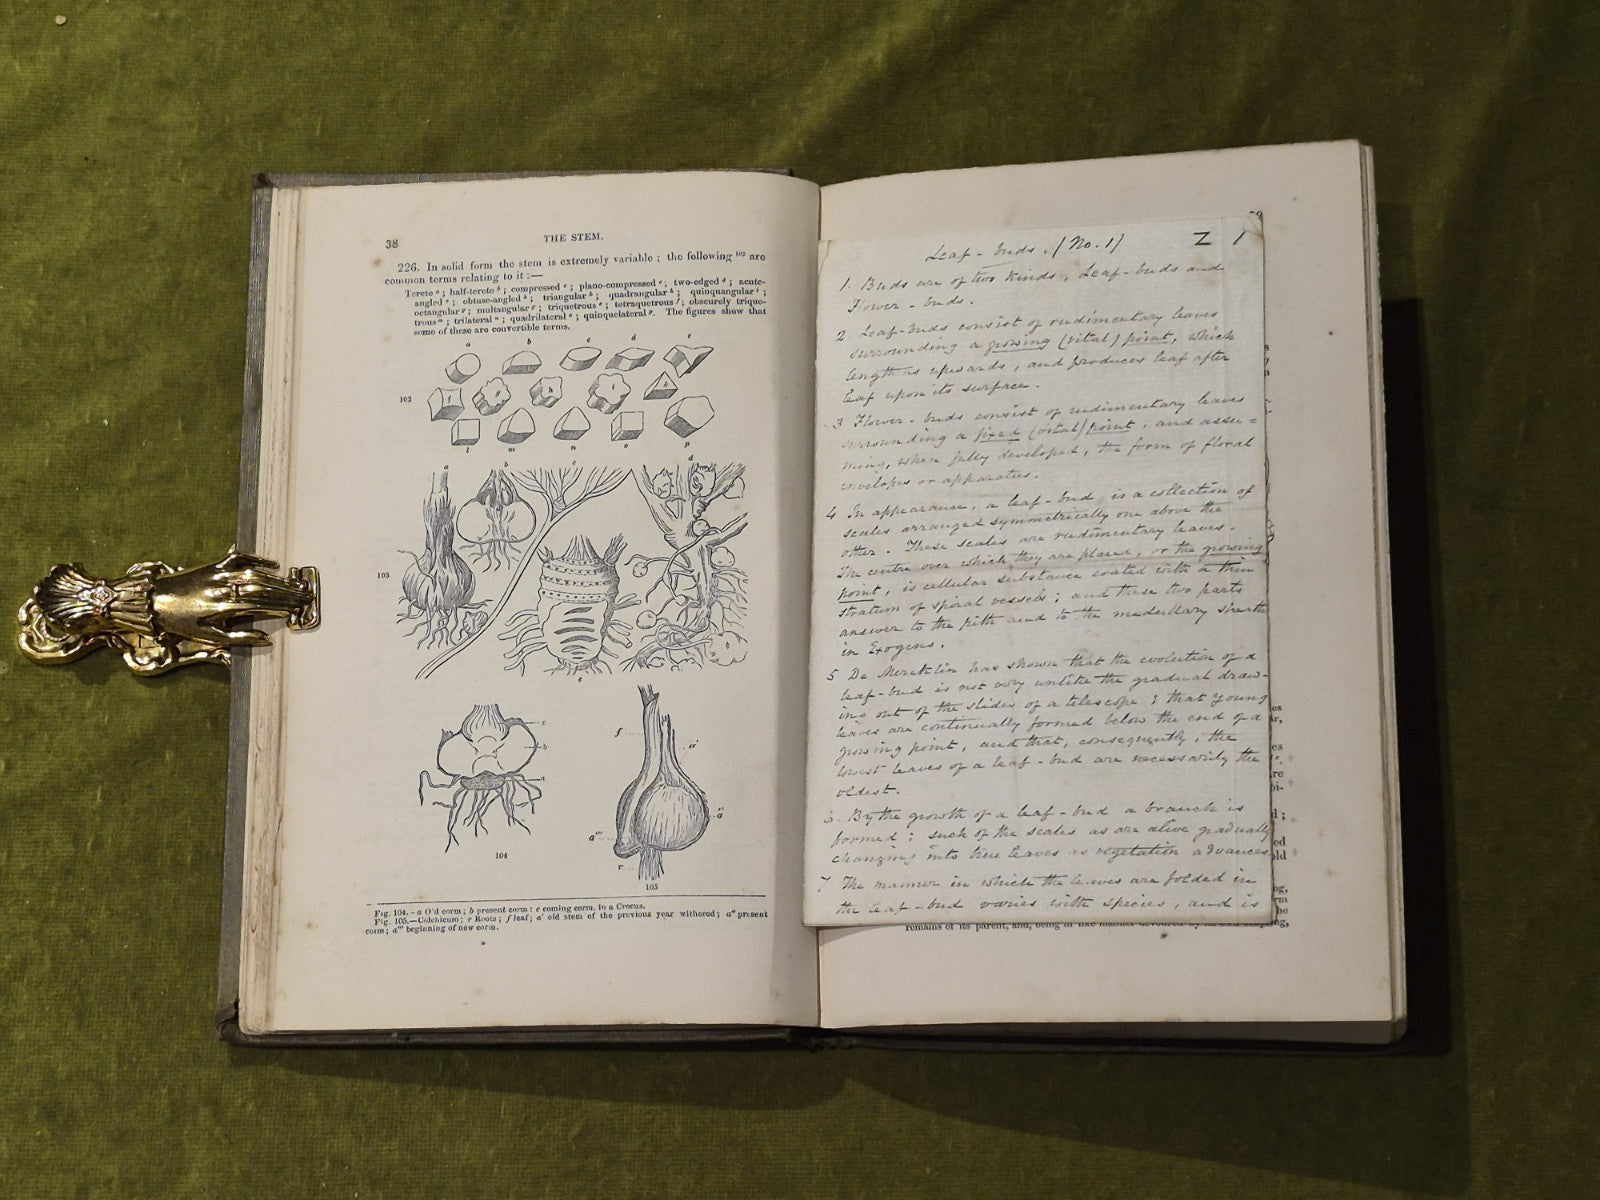 38
THE STEM.
226. In solid form the stem is extremely variable ; the following 102 are
common terms relating to it :—
Terete a ; half-terete b ; compressed c ; plano-compressed c ; two-edged d ; acute-
angled e ; obtuse-angled k ; triangular k ; quadrangular k ; quinquangular i ;
octangular g ; multangular g ; triquetrous e ; tetraquetrous f ; obscurely trique-
trous m ; trilateral n ; quadrilateral o ; quinquelateral p. The figures show that
some of these are convertible terms.
a b c d e
102
f g h i k
l m n o p
a b c d
103
e
c
b
a
104
f
a'
a''
a
a'''
r
105
Fig. 104.—a Old corm ; b present corm ; c coming corm, in a Crocus.
Fig. 105.—Colchicum ; r Roots ; f leaf ; a' old stem of the previous year withered ; a'' present
corm ; a''' beginning of new corm.
Leaf-buds. (No. 1) Z 1
1. Buds are of two kinds, Leaf-buds and
Flower-buds.
2 Leaf-buds consist of rudimentary leaves
surrounding a growing (vital) point, which
lengthens upwards, and produces leaf after
leaf upon its surface.
3 Flower-buds consist of rudimentary leaves
surrounding a fixed (vital) point, and assu=
ming, when fully developed, the form of floral
envelopes or apparatus.
4 In appearance, a leaf-bud is a collection of
scales arranged symmetrically one above the
other. These scales are rudimentary leaves.
The centre over which they are placed, or the growing
point, is cellular substance coated with a thin
stratum of spiral vessels ; and these two parts
answer to the pith and to the medullary sheath
in Exogens.
5 De Mercklin has shown that the evolution of a
leaf-bud is not very unlike the gradual draw-
ing out of the slides of a telescope ; that young
leaves are continually formed below the end of a
growing point, and that, consequently, the
lowest leaves of a leaf-bud are necessarily the
oldest.
6. By the growth of a leaf-bud a branch is
formed ; such of the scales as are alive gradually
changing into true leaves as vegetation advances
7 The manner in which the leaves are folded in
the leaf-bud varies with species, and is
remains of its parent, and, being in like manner devoured by its own offspring,